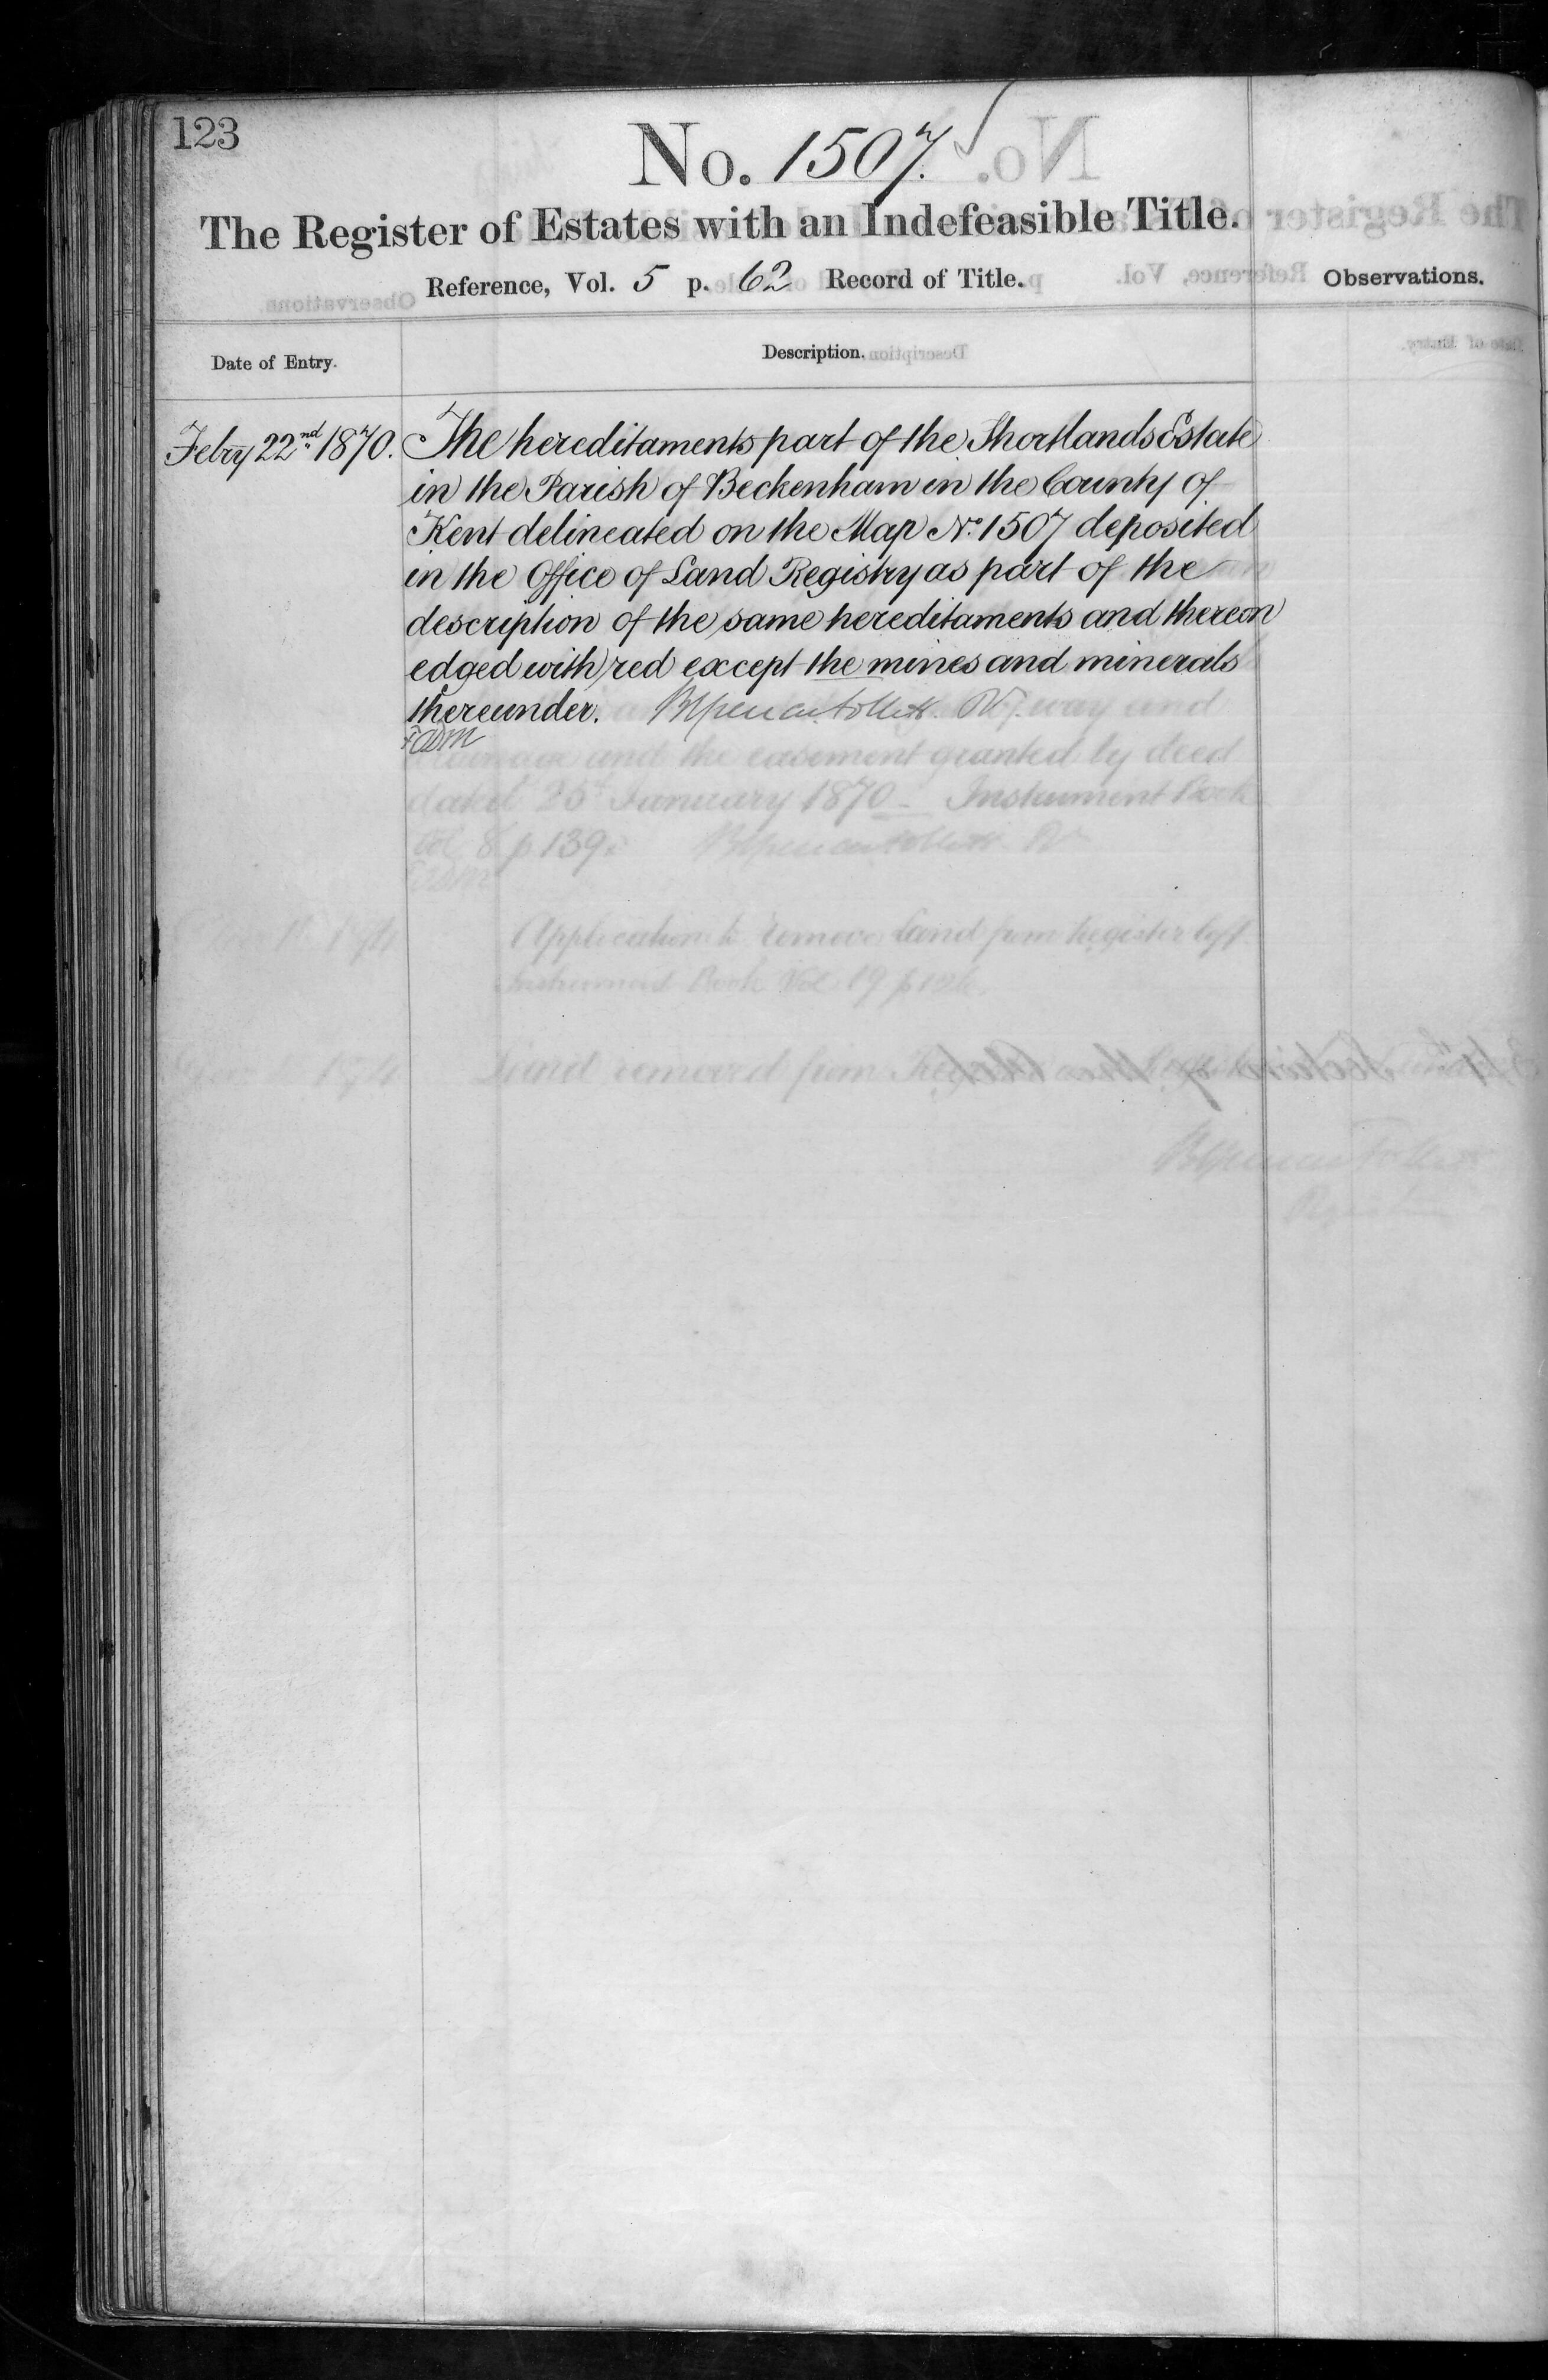 123
No. 1507.
The Register of Estates with an Indefeasible Title.
Reference, Vol. 5 p. 62 Record of Title.
Observations.
Date of Entry.
Description.
Febry 22nd 1870. The hereditaments part of the Shortlands Estate
in the Parish of Beckenham in the County of
Kent delineated on the Map No. 1507 deposited
in the Office of Land Registry as part of the
description of the same hereditaments and thereon
edged with red except the mines and minerals
thereunder.
way and
and the easement granted by deed
dated 25th January 1870 - Instrument Book
Vol 8 p 139.
Application to remove Land from Register left
Instrument Book Vol 19 p
Land removed from